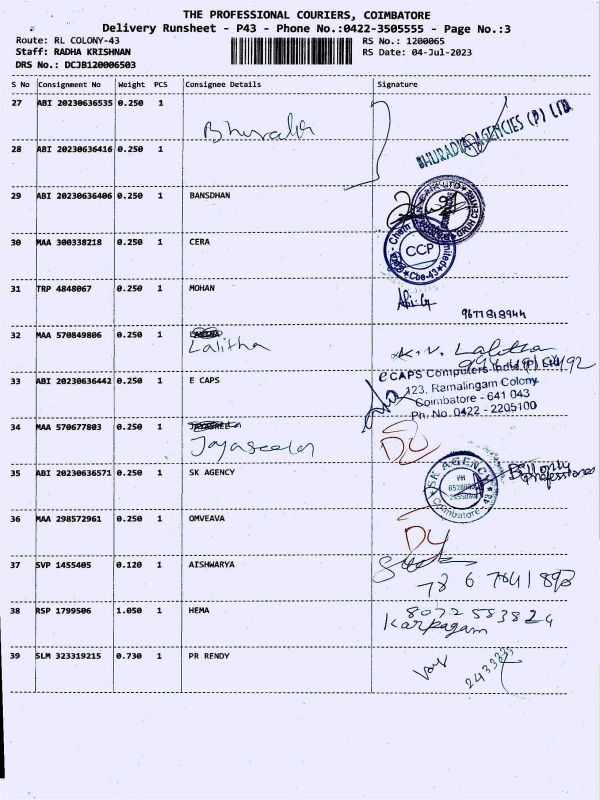 THE PROFESSIONAL COURIERS, COIMBATORE
Delivery Runsheet - P43 - Phone No.:0422-3505555 - Page No.:3
Route: RL COLONY-43 RS No.: 1200065
Staff: RADHA KRISHNAN RS Date: 04-Jul-2023
DRS No.: DCJB120006503
S No Consignment No Weight PCS Consignee Details Signature
27 ABI 20230636535 0.250 1
BHURADIA AGENCIES (P) LTD
28 ABI 20230636416 0.250 1
29 ABI 20230636406 0.250 1 BANSDHAN
30 MAA 300338218 0.250 1 CERA
CCP
Cbe-43
31 TRP 4848067 0.250 1 MOHAN
9677818944
32 MAA 570849806 0.250 1
Lalitha K.V. Lalitha
33 ABI 20230636442 0.250 1 E CAPS
eCAPS Computers India (P) Ltd
123, Ramalingam Colony
Coimbatore - 641 043
Ph. No. 0422 - 2205100
34 MAA 570677803 0.250 1 JAYASREELA
Jayaseela DL
35 ABI 20230636571 0.250 1 SK AGENCY
SK AGENCY
PH
Coimbatore - 43
Bill only
Professional
36 MAA 298572961 0.250 1 OMVEAVA
37 SVP 1455405 0.120 1 AISHWARYA
38 RSP 1799506 1.050 1 HEMA
8072 583824
Karpagam
39 SLM 323319215 0.730 1 PR RENDY